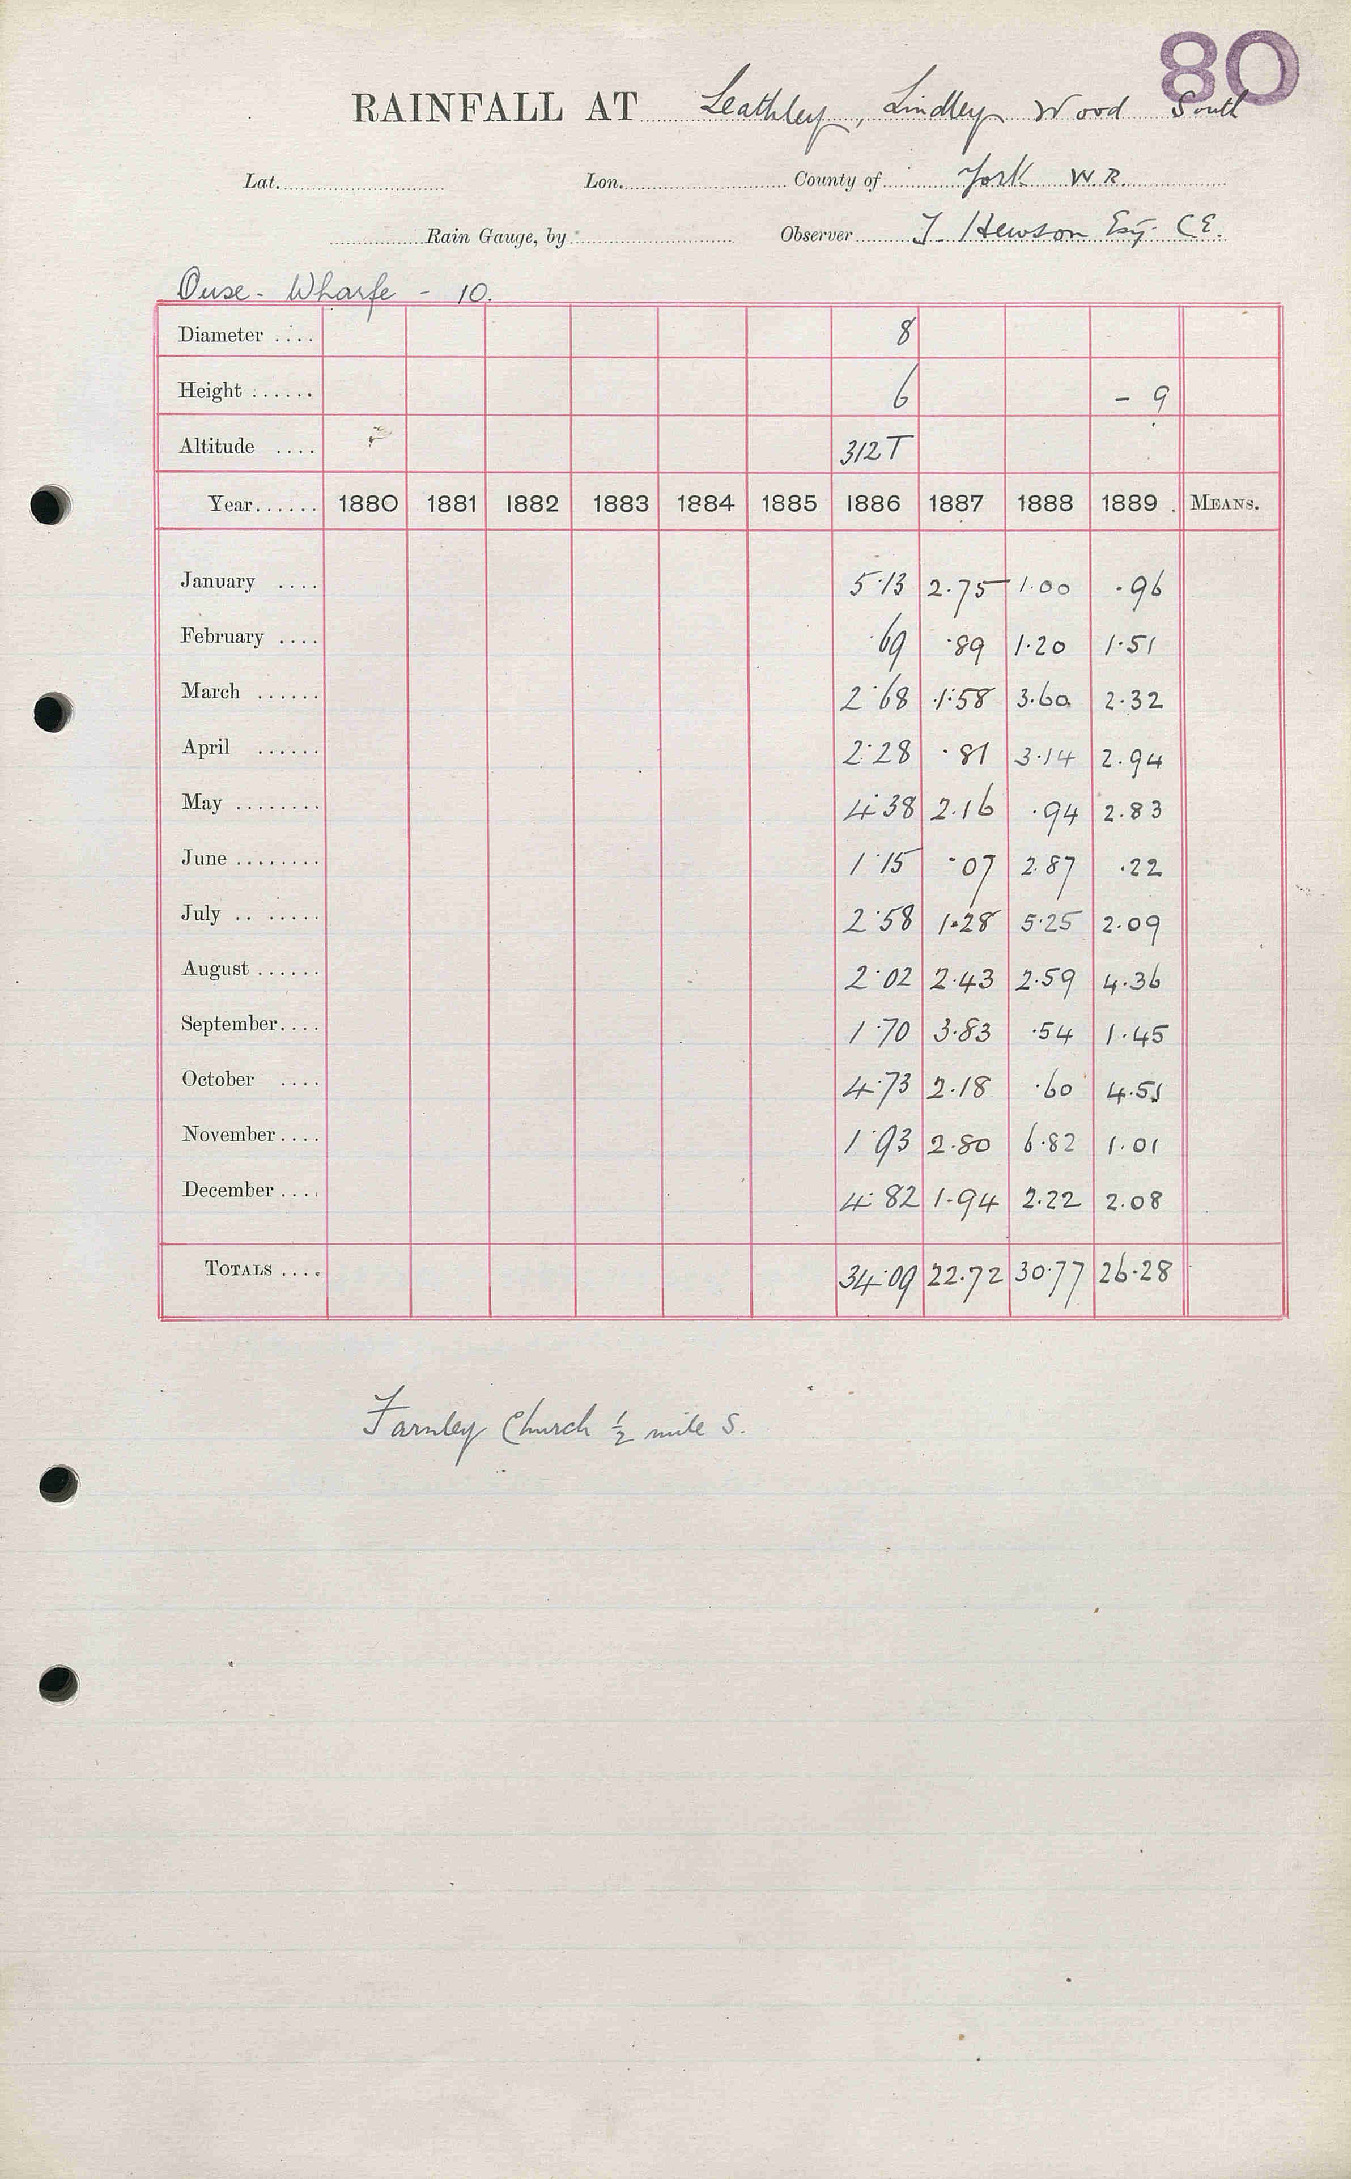 80
RAINFALL AT Leathley, Lindley Wood South
Lat. Lon. County of York W.R.
Rain Gauge, by Observer T. Hewson Esq. C.E.
Ouse - Wharfe - 10.
Diameter .... 8
Height ...... 6 - 9
Altitude .... 312 T
Year...... 1880 1881 1882 1883 1884 1885 1886 1887 1888 1889 MEANS.
January .... 5.13 2.75 1.00 .96
February .... .69 .89 1.20 1.51
March ...... 2.68 1.58 3.60 2.32
April ...... 2.28 .81 3.14 2.94
May ........ 4.38 2.16 .94 2.83
June ........ 1.15 .07 2.87 .22
July .. ..... 2.58 1.28 5.25 2.09
August ...... 2.02 2.43 2.59 4.36
September.... 1.70 3.83 .54 1.45
October .... 4.73 2.18 .60 4.51
November.... 1.93 2.80 6.82 1.01
December .... 4.82 1.94 2.22 2.08
TOTALS .... 34.09 22.72 30.77 26.28
Farnley Church ½ mile S.